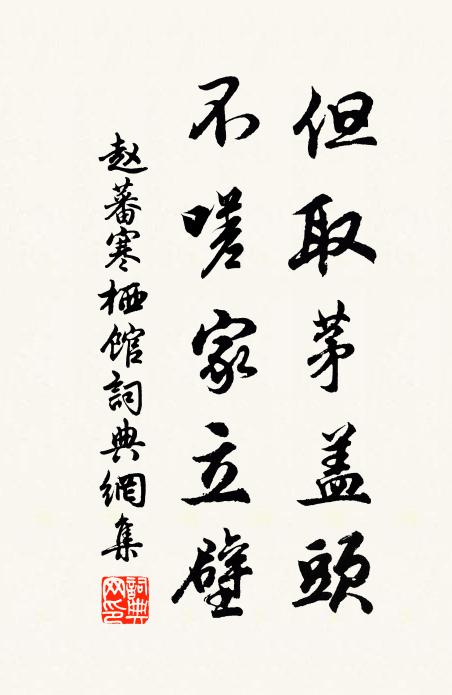 但取茅盖頭
不嗟家立壁
赵蕃寒栖馆詞典網集
詞典网印